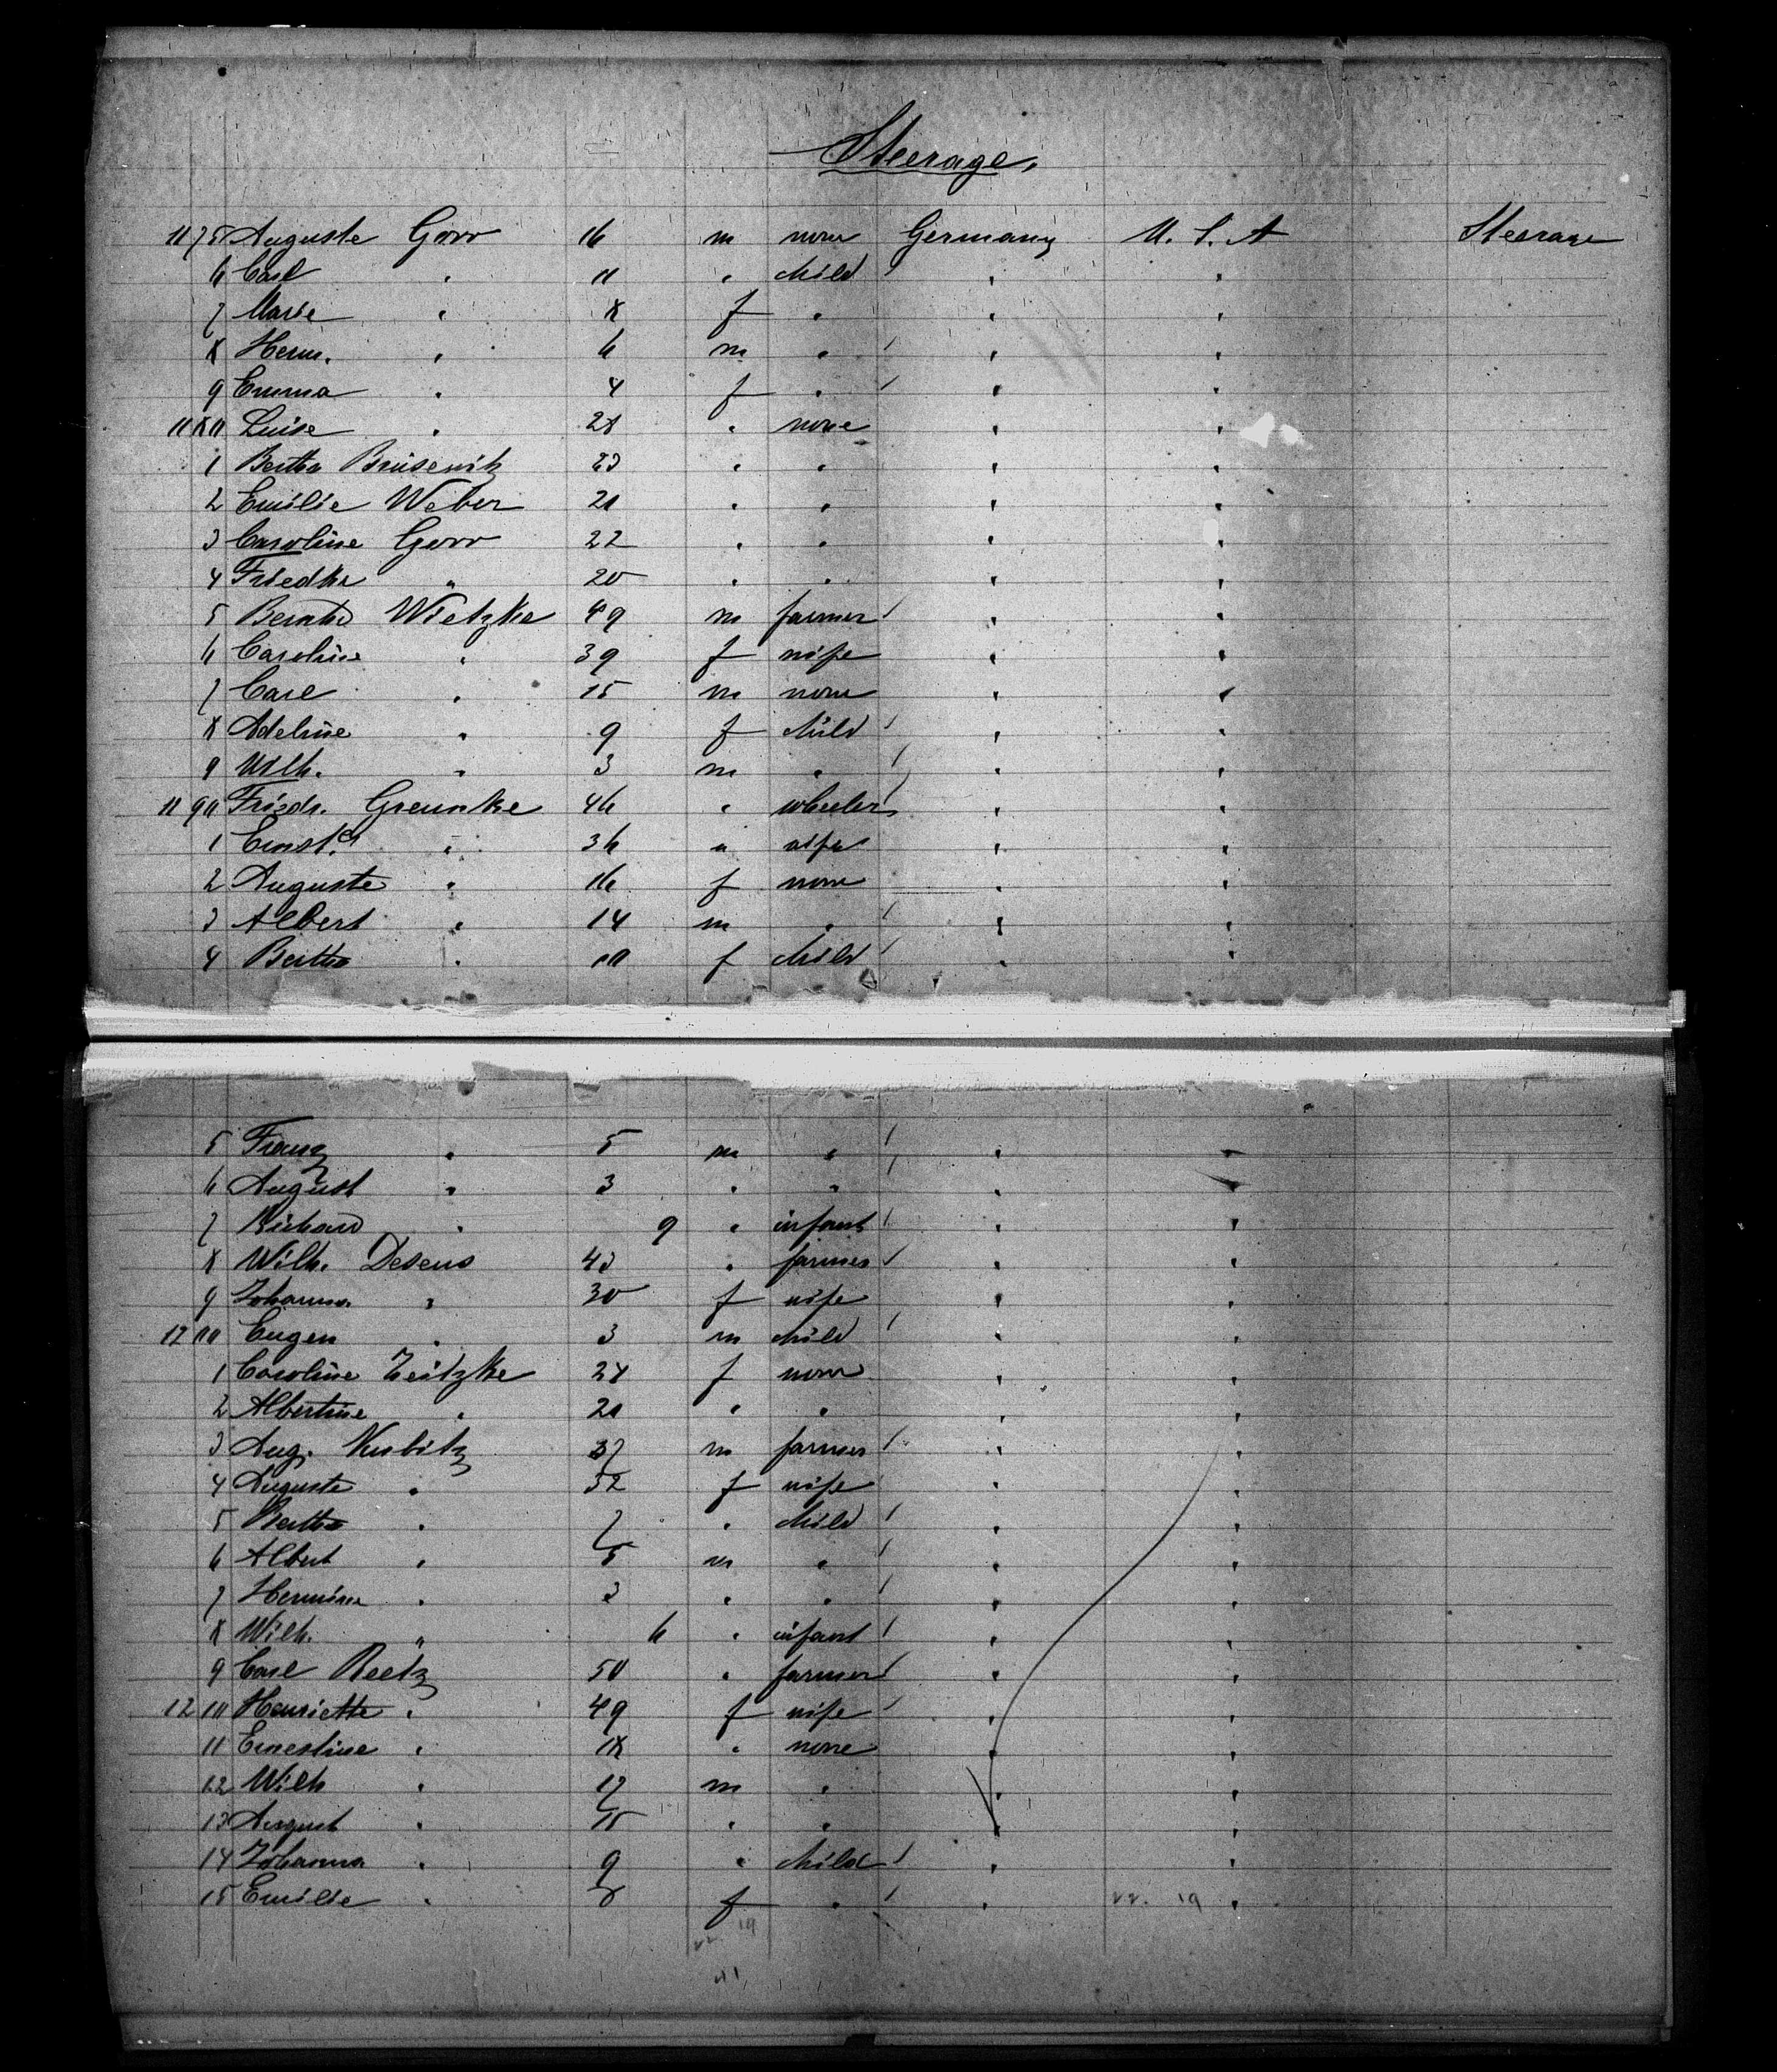 Steerage,
1175 Auguste Gorr 16 m none Germany U. S. A Steerage
6 Carl " 11 " child " "
7 Marie " 8 f " " "
8 Herm. " 6 m " " "
9 Emma " 4 f " " "
1180 Luise " 28 " none " "
1 Bertha Brüsewitz 23 " " " "
2 Emilie Weber 21 " " " "
3 Caroline Gorr 22 " " " "
4 Friedke " 20 " " " "
5 Bernhd Wietzke 49 m farmer " "
6 Caroline " 39 f wife " "
7 Carl " 15 m none " "
8 Adeline " 9 f child " "
9 Wilh. " 3 m " " "
1190 Friedr. Greunke 46 " wheeler " "
1 Ernst.e " 36 " wife " "
2 Auguste " 16 f none " "
3 Albert " 14 m " " "
4 Bertha " 10 f child " "
5 Franz " 5 m " " "
6 August " 3 " " " "
7 Richard " 9 " infant " "
8 Wilh. Desens 43 " farmer " "
9 Johanna " 30 f wife " "
1200 Eugen " 3 m child " "
1 Caroline Zeitzke 24 f none " "
2 Albertine " 21 " " " "
3 Aug. Kusbitz 37 m farmer " "
4 Auguste " 32 f wife " "
5 Bertha " 7 " child " "
6 Albert " 5 m " " "
7 Hermine " 3 " " " "
8 Wilh. " 6 " infant " "
9 Carl Reetz 50 " farmer " "
12 10 Henriette " 49 f wife " "
11 Ernestine " 18 " none " "
12 Wilh " 17 m " " "
13 August " 15 " " " "
14 Johanna " 9 " child " "
15 Emilie " f " " 22. 19 "
22. 19
41